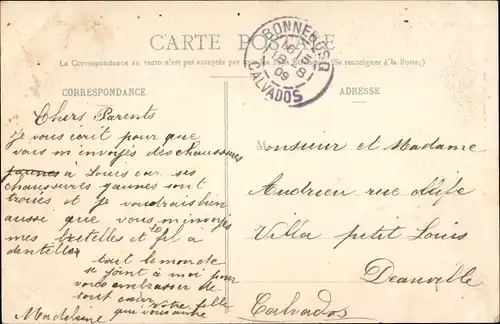 CARTE POSTALE
La Correspondance au recto n'est pas acceptée par tous les Pays Étrangers (Se renseigner à la Poste)
CORRESPONDANCE
Chers Parents
Je vous écrit pour que
vous m'invoyés des chaussures
jaunes à Louis car ses
chaussures jaunes sont
troués et je voudrais bien
aussi que vous m'invoyés
mes bretelles et le fil à
dentelles
tout le monde
se joint à moi pour
vous embrasser de
tout cœur votre fille
qui vous aime
Madeleine
BONNEBOSQ
09
CALVADOS
ADRESSE
Monsieur et Madame
Andrieu rue
Villa petit Louis
Deauville
Calvados